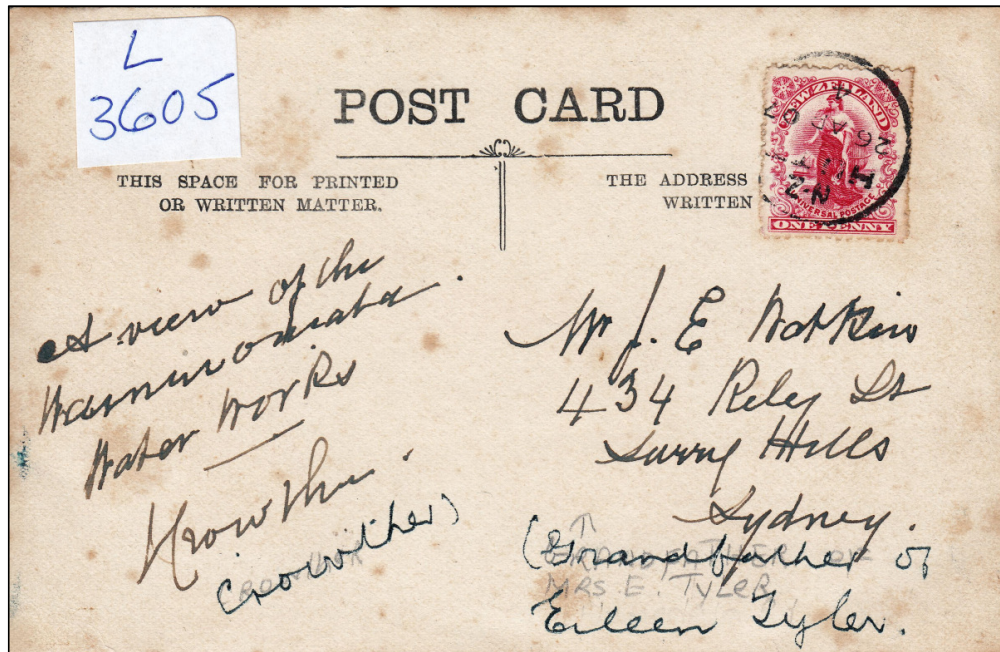 L
3605
POST CARD
THIS SPACE FOR PRINTED
OR WRITTEN MATTER.
THE ADDRESS
WRITTEN
NEW ZEALAND
UNIVERSAL POSTAGE
ONE PENNY
A view of the
Wainuiomata
Water Works
Crowther.
(Crowther)
Mr J. E Watkins
434 Riley St
Surry Hills
Sydney.
(Grandfather of
Eileen Tyler.
GRANDFATHER OF
MRS E. TYLER